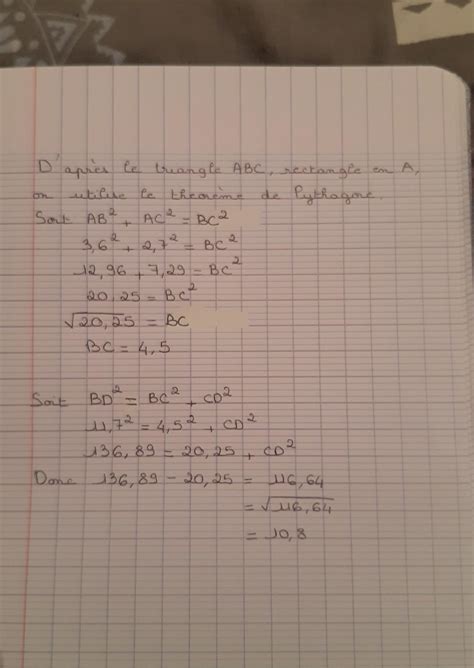 D'après le triangle ABC, rectangle en A,
on utilise le théorème de Pythagore.
Soit AB² + AC² = BC²
3,6² + 2,7² = BC²
12,96 + 7,29 = BC²
20,25 = BC²
√20,25 = BC
BC = 4,5
Soit BD² = BC² + CD²
11,7² = 4,5² + CD²
136,89 = 20,25 + CD²
Donc 136,89 - 20,25 = 116,64
= √116,64
= 10,8